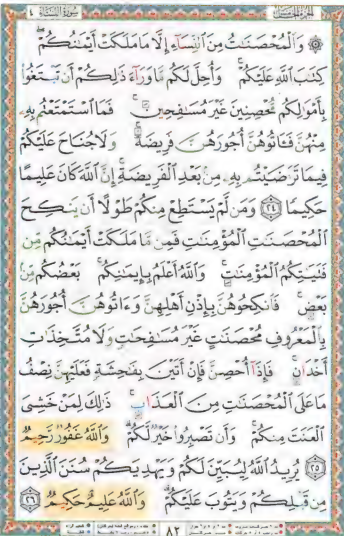 سورة النساء ٤
۞ وَالْمُحْصَنَٰتُ مِنَ النِّسَآءِ إِلَّا مَا مَلَكَتْ أَيْمَٰنُكُمْ ۖ
كِتَٰبَ اللَّهِ عَلَيْكُمْ ۚ وَأُحِلَّ لَكُم مَّا وَرَآءَ ذَٰلِكُمْ أَن تَبْتَغُوا۟
بِأَمْوَٰلِكُم مُّحْصِنِينَ غَيْرَ مُسَٰفِحِينَ ۚ فَمَا اسْتَمْتَعْتُم بِهِۦ
مِنْهُنَّ فَـَٔاتُوهُنَّ أُجُورَهُنَّ فَرِيضَةً ۚ وَلَا جُنَاحَ عَلَيْكُمْ
فِيمَا تَرَٰضَيْتُم بِهِۦ مِنۢ بَعْدِ الْفَرِيضَةِ ۚ إِنَّ اللَّهَ كَانَ عَلِيمًا
حَكِيمًا ٢٤ وَمَن لَّمْ يَسْتَطِعْ مِنكُمْ طَوْلًا أَن يَنكِحَ
الْمُحْصَنَٰتِ الْمُؤْمِنَٰتِ فَمِن مَّا مَلَكَتْ أَيْمَٰنُكُم مِّن
فَتَيَٰتِكُمُ الْمُؤْمِنَٰتِ ۚ وَاللَّهُ أَعْلَمُ بِإِيمَٰنِكُم ۚ بَعْضُكُم مِّنۢ
بَعْضٍ ۚ فَانكِحُوهُنَّ بِإِذْنِ أَهْلِهِنَّ وَءَاتُوهُنَّ أُجُورَهُنَّ
بِالْمَعْرُوفِ مُحْصَنَٰتٍ غَيْرَ مُسَٰفِحَٰتٍ وَلَا مُتَّخِذَٰتِ
أَخْدَانٍ ۚ فَإِذَآ أُحْصِنَّ فَإِنْ أَتَيْنَ بِفَٰحِشَةٍ فَعَلَيْهِنَّ نِصْفُ
مَا عَلَى الْمُحْصَنَٰتِ مِنَ الْعَذَابِ ۚ ذَٰلِكَ لِمَنْ خَشِىَ
الْعَنَتَ مِنكُمْ ۚ وَأَن تَصْبِرُوا۟ خَيْرٌ لَّكُمْ ۗ وَاللَّهُ غَفُورٌ رَّحِيمٌ
٢٥ يُرِيدُ اللَّهُ لِيُبَيِّنَ لَكُمْ وَيَهْدِيَكُمْ سُنَنَ الَّذِينَ
مِن قَبْلِكُمْ وَيَتُوبَ عَلَيْكُمْ ۗ وَاللَّهُ عَلِيمٌ حَكِيمٌ ٢٦
٨٢